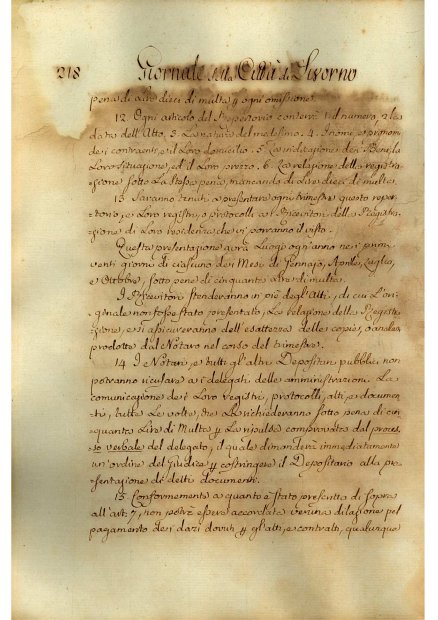 218 Giornale della Città di Livorno
pena di Lire dieci di multa p ogni omissione.
12. Ogni articolo del Repertorio conterrà 1. il numero, 2. la
data dell'Atto, 3. La natura del medesimo. 4. I nomi, e prenomi
dei contraenti, e il Loro domicilio. 5. La indicazione dei Beni, la
Loro Situazione, ed il Loro prezzo. 6. La relazione della registra-
zione sotto La stessa pena, mancando di Lire dieci di multa.
13. Saranno tenuti a presentare ogni trimestre questo reper
torio, e Loro registri, o protocolli ai Ricevitori della Registra-
zione di Loro residenza che vi porranno il visto.
Questa presentazione avrà Luogo ogn'anno nei primi
venti giorni di ciascuno dei Mesi di Gennajo, Aprile, Luglio,
e Ottobre, sotto pena di cinquanta Lire di multa.
I Ricevitori stenderanno in piè degl'Atti, di cui L'ori-
ginale non fosse stato presentato, La relazione della Registra-
zione, e si assicureranno dell'esattezza delle copie, o
prodotte dal Notaro nel corso del trimestre.
14. I Notari, e tutti gl'altri Depositari pubblici non
potranno ricusare ai delegati delle amministrazioni La
comunicazione dei Loro registri, protocolli, atti, e documen-
ti, tutte Le volte, che La richiederanno sotto pena di cin-
quanta Lire di Multa p La ripulsa comprovata dal proces-
so verbale del delegato, il quale dimanderà immediatamente
un'ordine del Giudice p costringere il Depositario alla pre-
sentazione di detti documenti.
15. Conformemente a quanto è stato prescritto di sopra
all'art. 7, non potrà essere accordata veruna dilazione pel
pagamento dei dazi dovuti p gl'atti, e contratti, qualunque